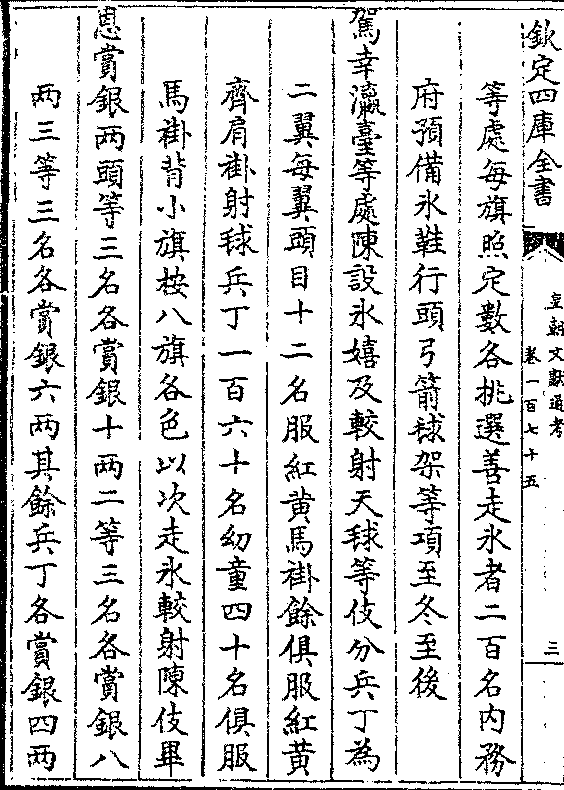 欽定四庫全書
皇朝文獻通考
卷一百七十五
三
等處每旗照定數各挑選善走氷者二百名内務
府預備氷鞵行頭弓箭毬架等項至冬至後
駕幸瀛臺等處陳設氷嬉及較射天毬等伎分兵丁為
二翼每翼頭目十二名服紅黄馬褂餘俱服紅黄
齊肩褂射毬兵丁一百六十名幼童四十名俱服
馬褂背小旗按八旗各色以次走氷較射陳伎畢
恩賞銀兩頭等三名各賞銀十兩二等三名各賞銀八
兩三等三名各賞銀六兩其餘兵丁各賞銀四兩